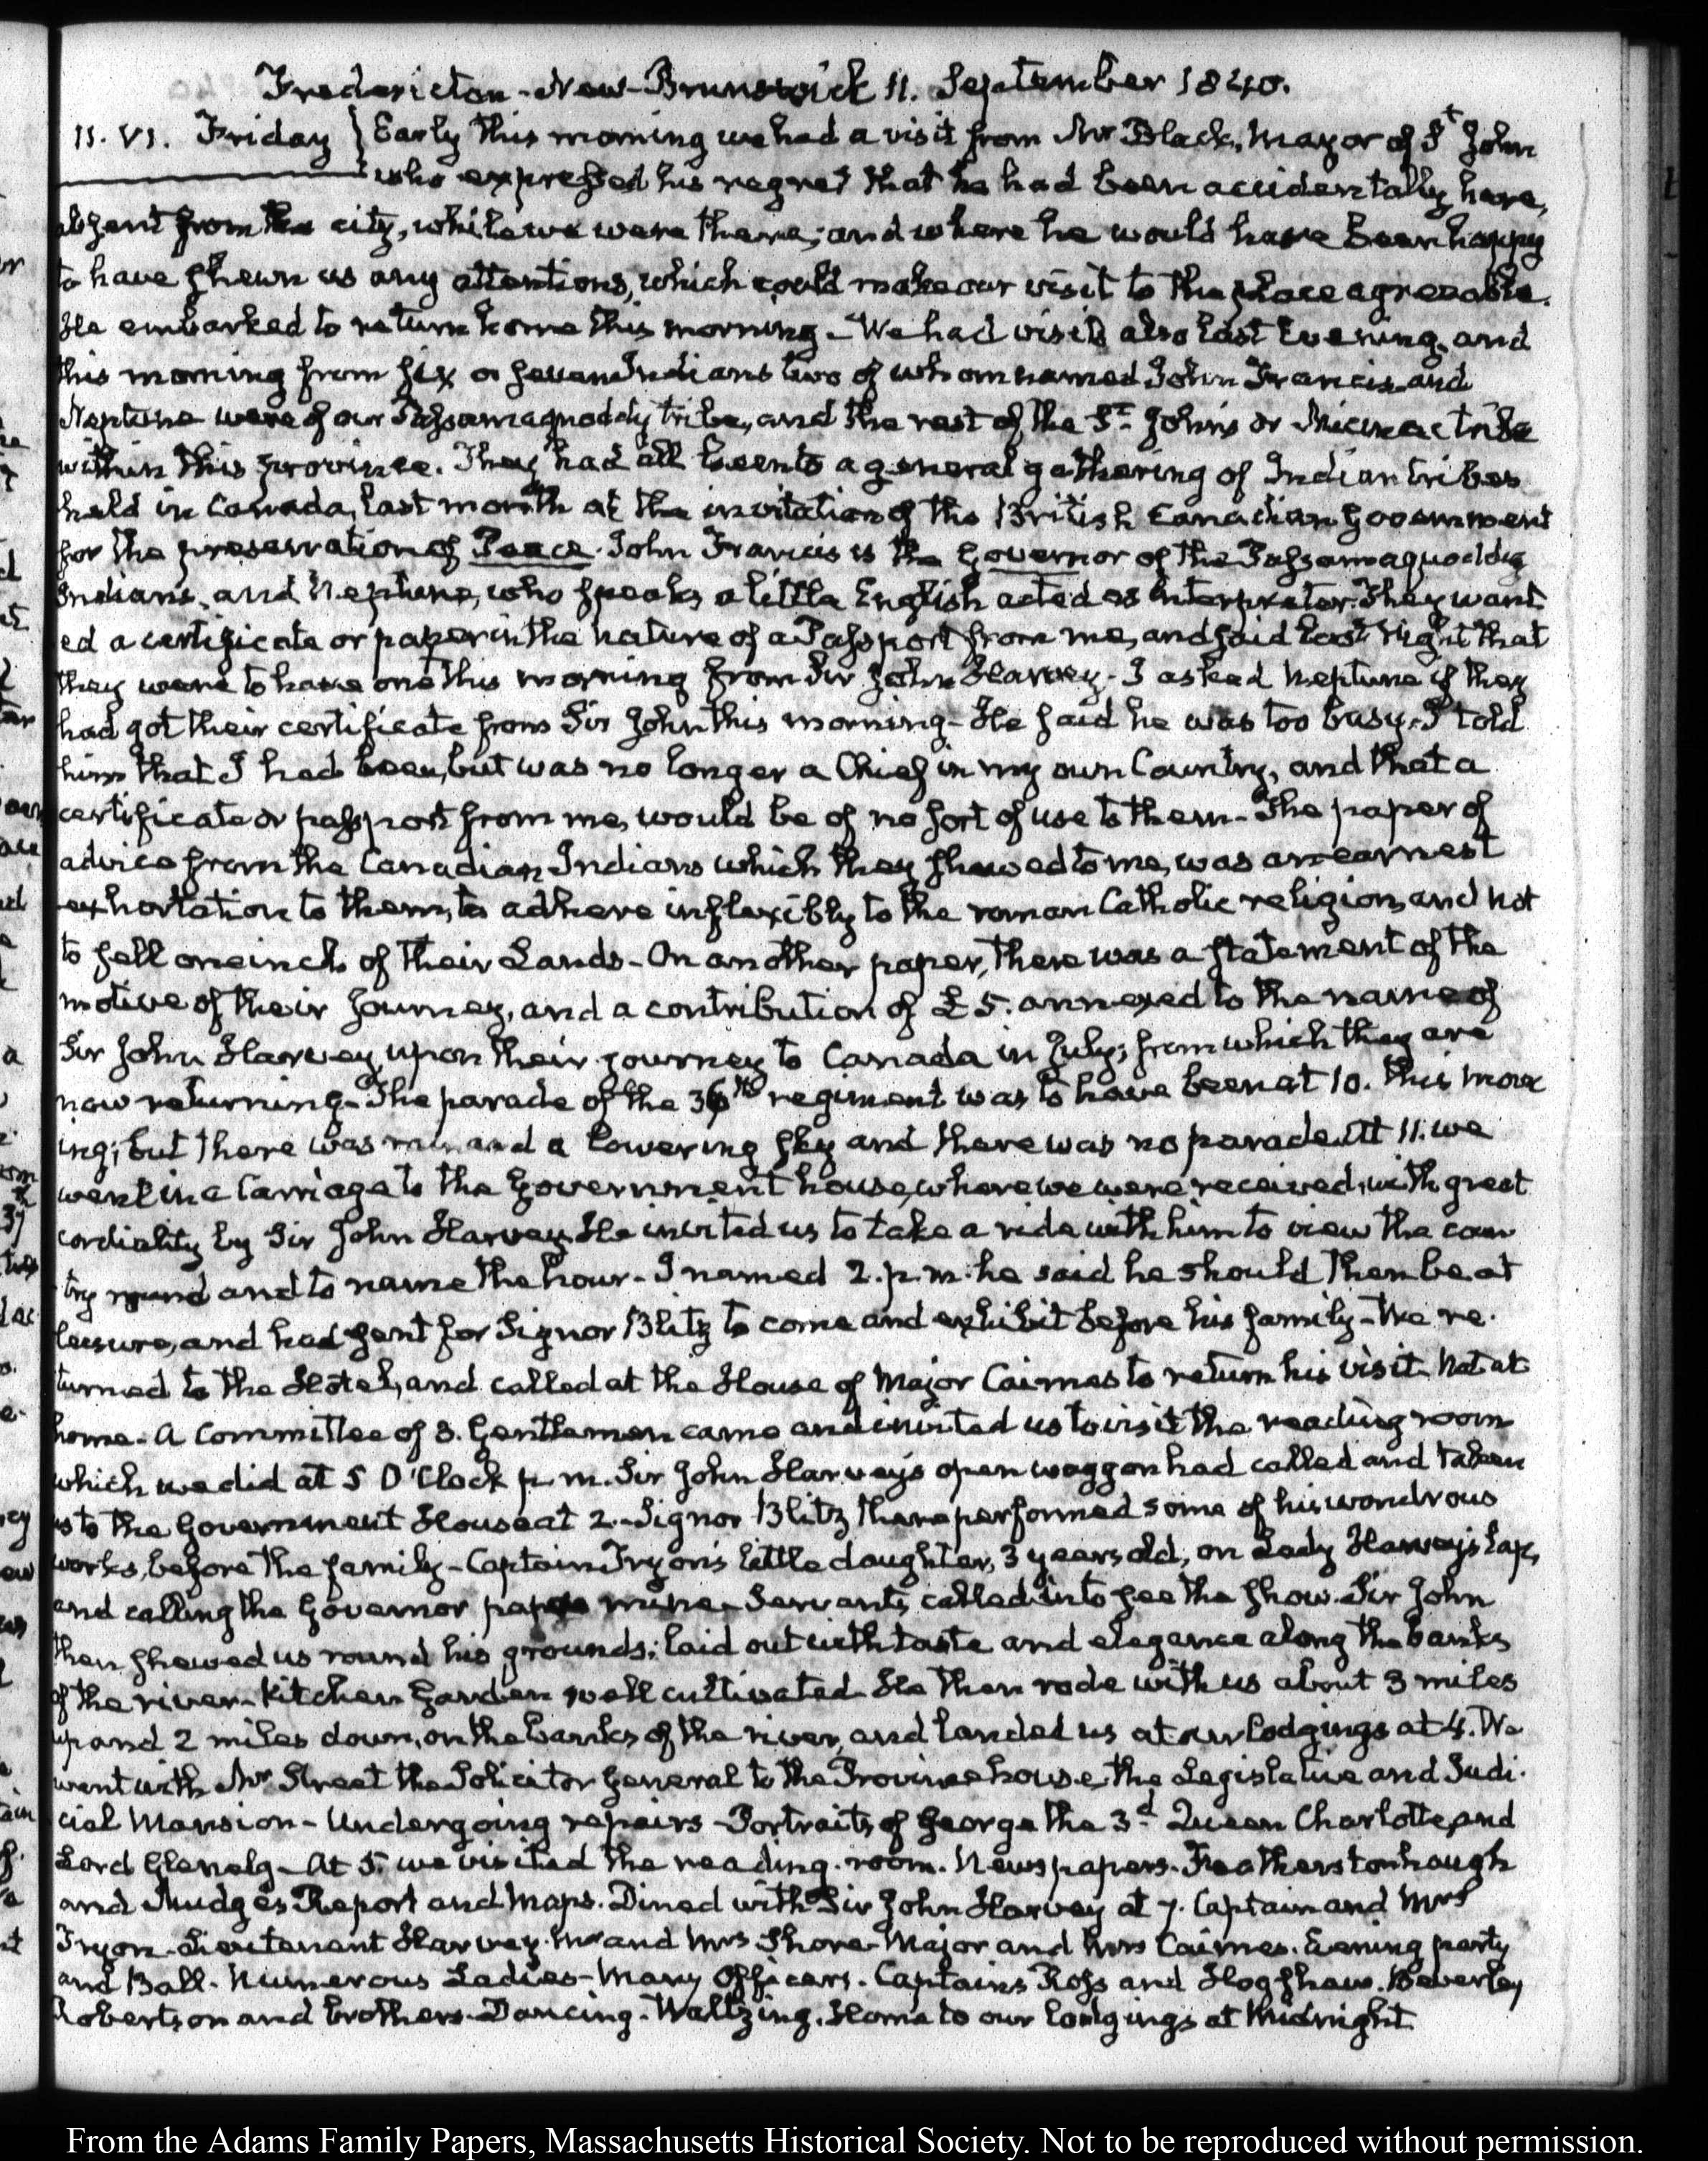 Fredericton - New-Brunswick 11. September 1840.
11. VI. Friday } Early this morning we had a visit from Mr Black, Mayor of St John
who expressed his regret that he had been accidentally here,
absent from the city, while we were there; and where he would have been happy
to have shewn us any attentions, which could make our visit to the place agreeable.
He embarked to return home this morning - We had visits also last Evening, and
this morning from six or seven Indians two of whom named John Francis and
Neptune were of our Passamaquoddy tribe, and the rest of the St Johns or Micmac tribe
within this province. They had all been to a general gathering of Indian tribes
held in Canada, last month at the invitation of the British Canadian Government
for the preservation of Peace. John Francis is the Governor of the Passamaquoddy
Indians, and Neptune, who speaks a little English acted as Interpreter. They want-
ed a certificate or paper in the nature of a Passport from me, and said last Night that
they were to have one this morning from Sir John Harvey - I asked Neptune if they
had got their certificate from Sir John this morning - He said he was too busy. I told
him that I had been, but was no longer a Chief in my own Country, and that a
certificate or passport from me, would be of no sort of use to them - The paper of
advice from the Canadian Indians which they shewed to me, was an earnest
exhortation to them, to adhere inflexibly to the roman Catholic religion, and not
to sell one inch of their Lands - On another paper, there was a statement of the
motive of their journey, and a contribution of £5. annexed to the name of
Sir John Harvey upon their journey to Canada in July; from which they are
now returning - The parade of the 36th regiment was to have been at 10. this morn
ing; but there was rain and a lowering sky and there was no parade. At 11. we
went in a Carriage to the Government house, where we were received, with great
cordiality by Sir John Harvey. He invited us to take a ride with him to view the coun
try round and to name the hour - I named 2. p.m. he said he should then be at
leisure, and had sent for Signor Blitz to come and exhibit before his family - We re-
turned to the Hotel, and called at the House of Major Cairnes to return his visit. Not at
home - A Committee of 3. Gentlemen came and invited us to visit the reading room
which we did at 5 O'Clock p.m. Sir John Harvey's open waggon had called and taken
us to the Government House at 2. - Signor Blitz there performed some of his wondrous
works, before the family - Captain Tryon's little daughter, 3 years old, on Lady Harvey's lap,
and calling the Governor papa mine - Servants called in to see the show. Sir John
then shewed us round his grounds; laid out with taste and elegance along the banks
of the river - Kitchen Garden well cultivated. He then rode with us about 3 miles
up and 2 miles down, on the banks of the river, and landed us at our lodgings at 4. We
went with Mr Street the Solicitor General to the Province house, the Legislative and Judi-
cial Mansion - Undergoing repairs - Portraits of George the 3d Queen Charlotte and
Lord Glenelg - At 5. we visited the reading-room. Newspapers - Featherstonhaugh
and Mudge's Report and Maps. Dined with Sir John Harvey at 7. Captain and Mrs
Tryon - Lieutenant Harvey. Mr and Mrs Shore - Major and Mrs Cairnes. Evening party
and Ball - Numerous Ladies - Many Officers. Captains Ross and Hogshaw. Beverley
Robertson and brothers - Dancing - Waltzing. Home to our lodgings at Midnight.
From the Adams Family Papers, Massachusetts Historical Society. Not to be reproduced without permission.